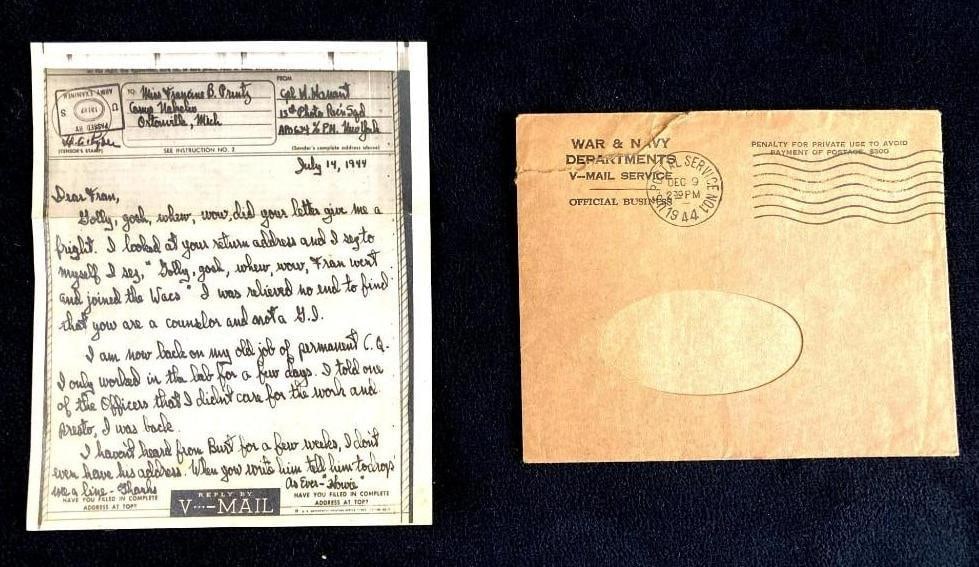 TO:
Miss Francine B. Printz
Camp Nahelu
Ortonville, Mich
SEE INSTRUCTION NO. 2
FROM
Cpl H.
13th Photo Rec'n Sqd
APO 634 % P.M. New York
(Sender's complete address above)
ARMY EXAMINER
U S
PASSED BY
(CENSOR'S STAMP)
July 14, 1944
Dear Fran,
Golly, gosh, whew, wow, did your letter give me a
fright. I looked at your return address and I sez to
myself I sez, "Golly, gosh, whew, wow, Fran went
and joined the Wacs" I was relieved no end to find
that you are a counselor and not a G.I.
I am now back on my old job of permanent C.Q.
I only worked in the lab for a few days. I told one
of the Officers that I didn't care for the work and
Presto, I was back.
I haven't heard from Burt for a few weeks, I don't
even have his address. When you write him tell him to drop
me a line - Thanks
As Ever - "Howie"
HAVE YOU FILLED IN COMPLETE
ADDRESS AT TOP?
REPLY BY
V···–MAIL
HAVE YOU FILLED IN COMPLETE
ADDRESS AT TOP?
WAR & NAVY
DEPARTMENTS
V–MAIL SERVICE
OFFICIAL BUSINESS
POSTAL SERVICE NO. 1
DEC 9
2:30 PM
1944
PENALTY FOR PRIVATE USE TO AVOID
PAYMENT OF POSTAGE, $300